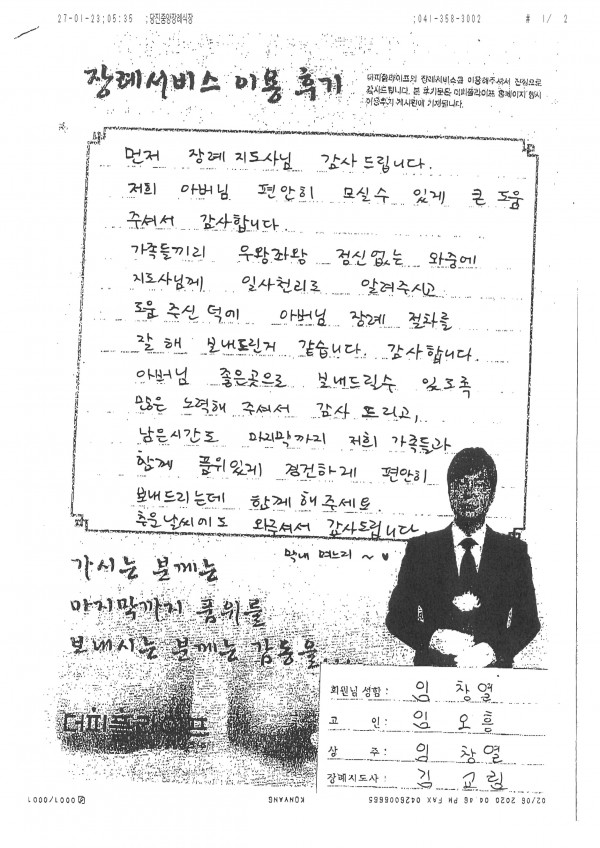 27-01-23;05:35 ;당진중앙장례식장 ;041-358-3002 # 1/ 2
장례서비스 이용 후기
더피플라이프의 장례서비스를 이용해주셔서 진심으로
감사드립니다. 본 후기문은 더피플라이프 홈페이지 행사
이용후기 게시판에 기재됩니다.
먼저 장례지도사님 감사드립니다.
저희 아버님 편안히 모실수 있게 큰 도움
주셔서 감사합니다
가족들끼리 우왕좌왕 정신없는 와중에
지도사님께 일사천리로 알려주시고
도움 주신 덕에 아버님 장례 절차를
잘 해 보내드린거 같습니다. 감사합니다.
아버님 좋은곳으로 보내드릴수 있도록
많은 노력해 주셔서 감사 드리고,
남은시간도 마지막까지 저희 가족들과
함께 품위있게 경건하게 편안히
보내드리는데 함께해주세요.
추운날씨에도 와주셔서 감사드립니다
막내 며느리 ~ ♥
가시는 분께는
마지막까지 품위를
보내시는 분께는 감동을....
더피플라이프
회원님 성함 : 임 창열
고 인 : 임 오흥
상 주 : 임 창열
장례지도사 : 김 교림
02/06 2020 04:46 PM FAX 0426006665 KONYANG 0001/0001